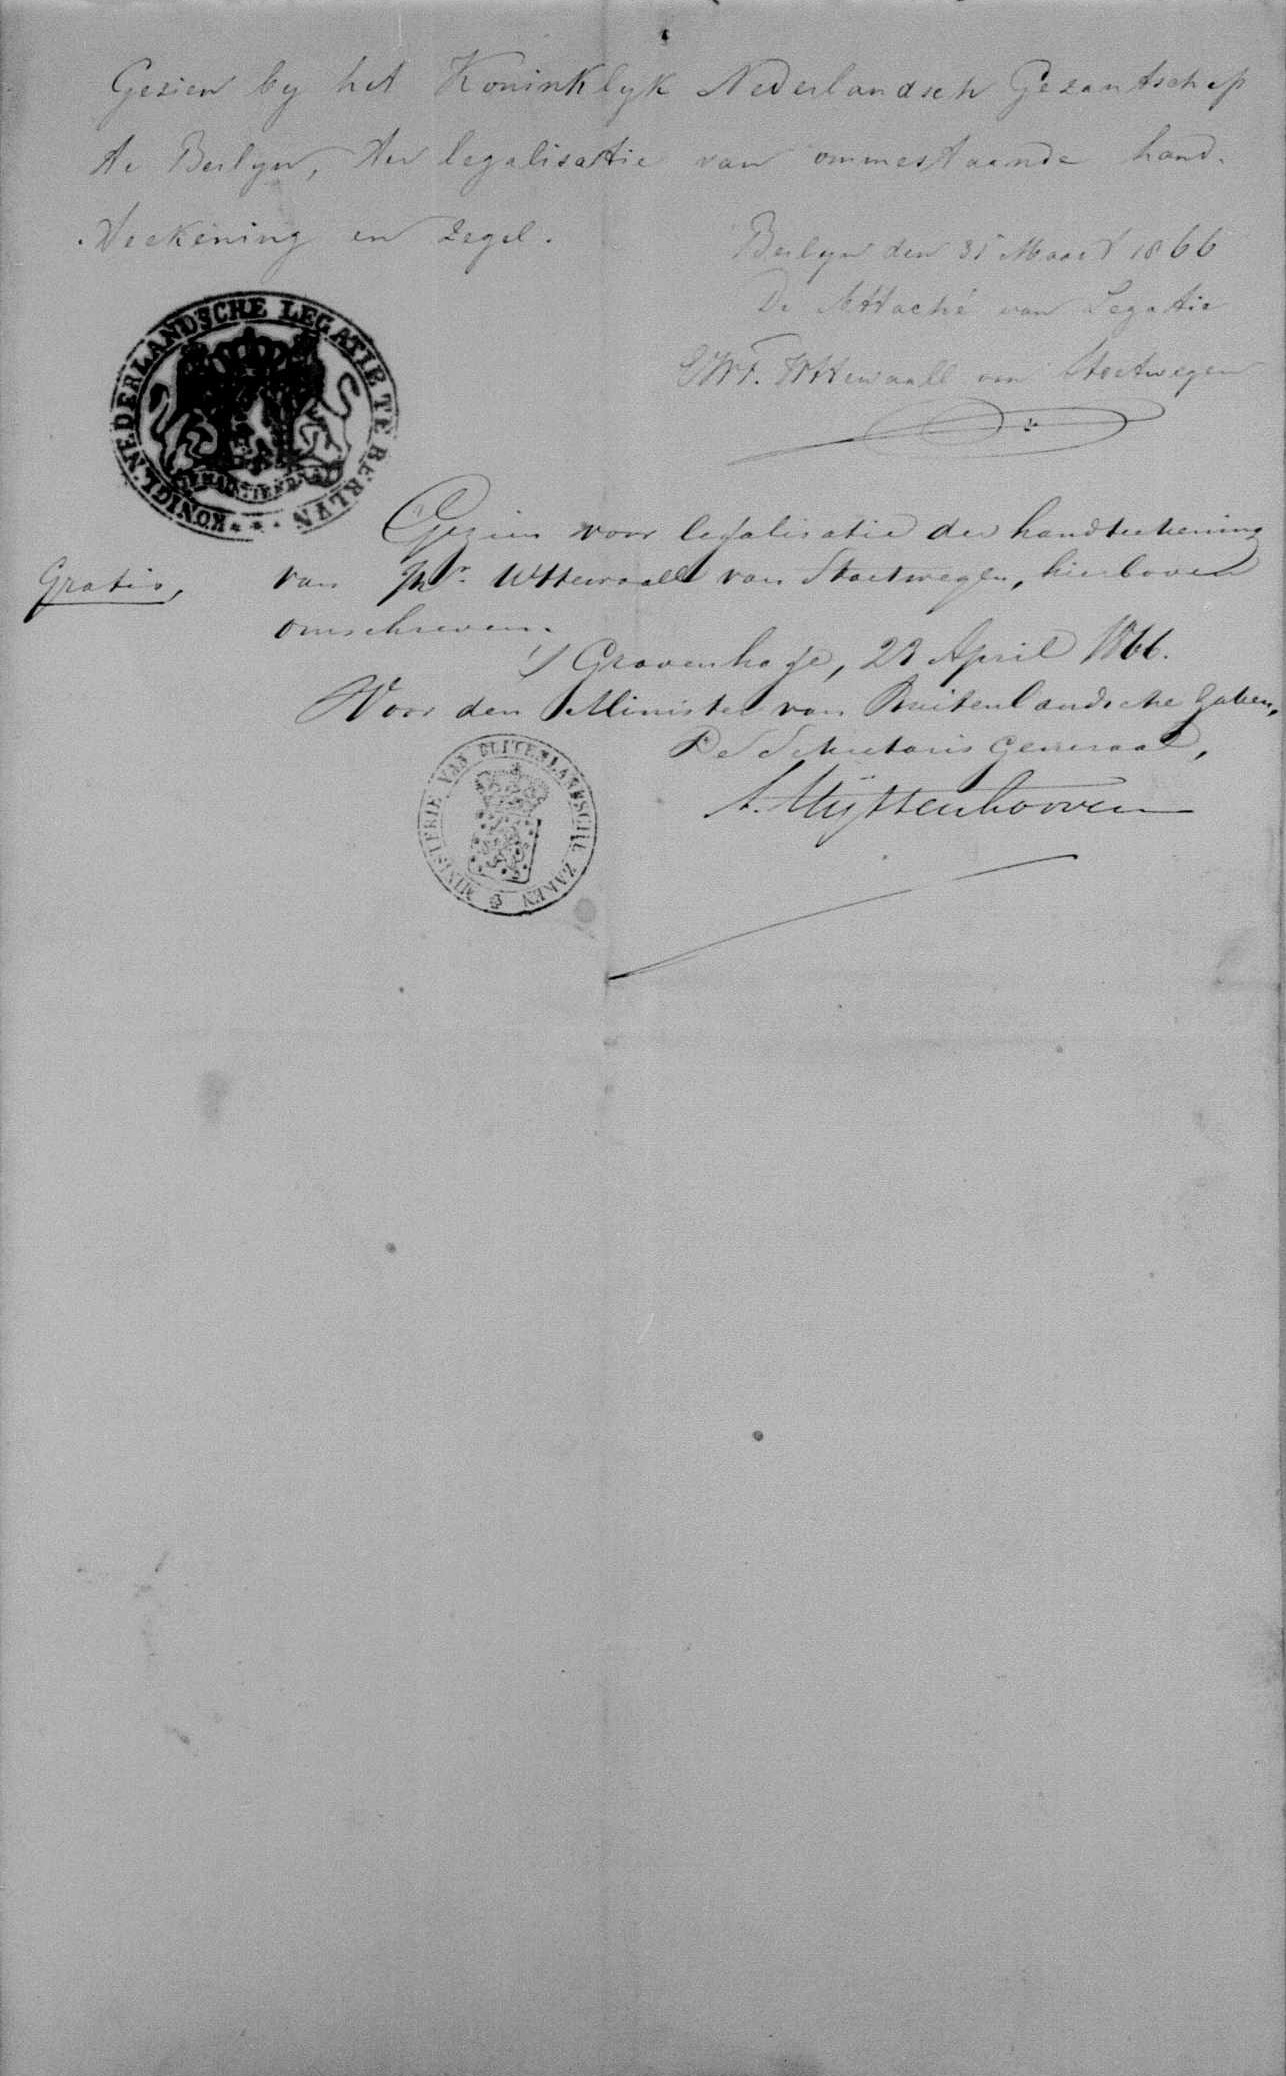 Gezien by het Koninklyk Nederlandsch Gezantschap
te Berlyn, ter legalisatie van ommestaande hand-
teekening en zegel.
Berlyn den 31 Maart 1866
De Attaché van Legatie
Wttewaall van Stoetwegen
KONIGL. NEDERLANDSCHE LEGATIE TE BERLYN
Gezien voor legalisatie der handteekening
Gratis,
van Jhr. Wttewaall van Stoetwegen, hierboven
omschreven.
's Gravenhage, 23 April 1866.
Voor den Minister van Buitenlandsche Zaken,
De Secretaris Generaal,
A. Uyttenhooven
MINISTERIE VAN BUITENLANDSCHE ZAKEN